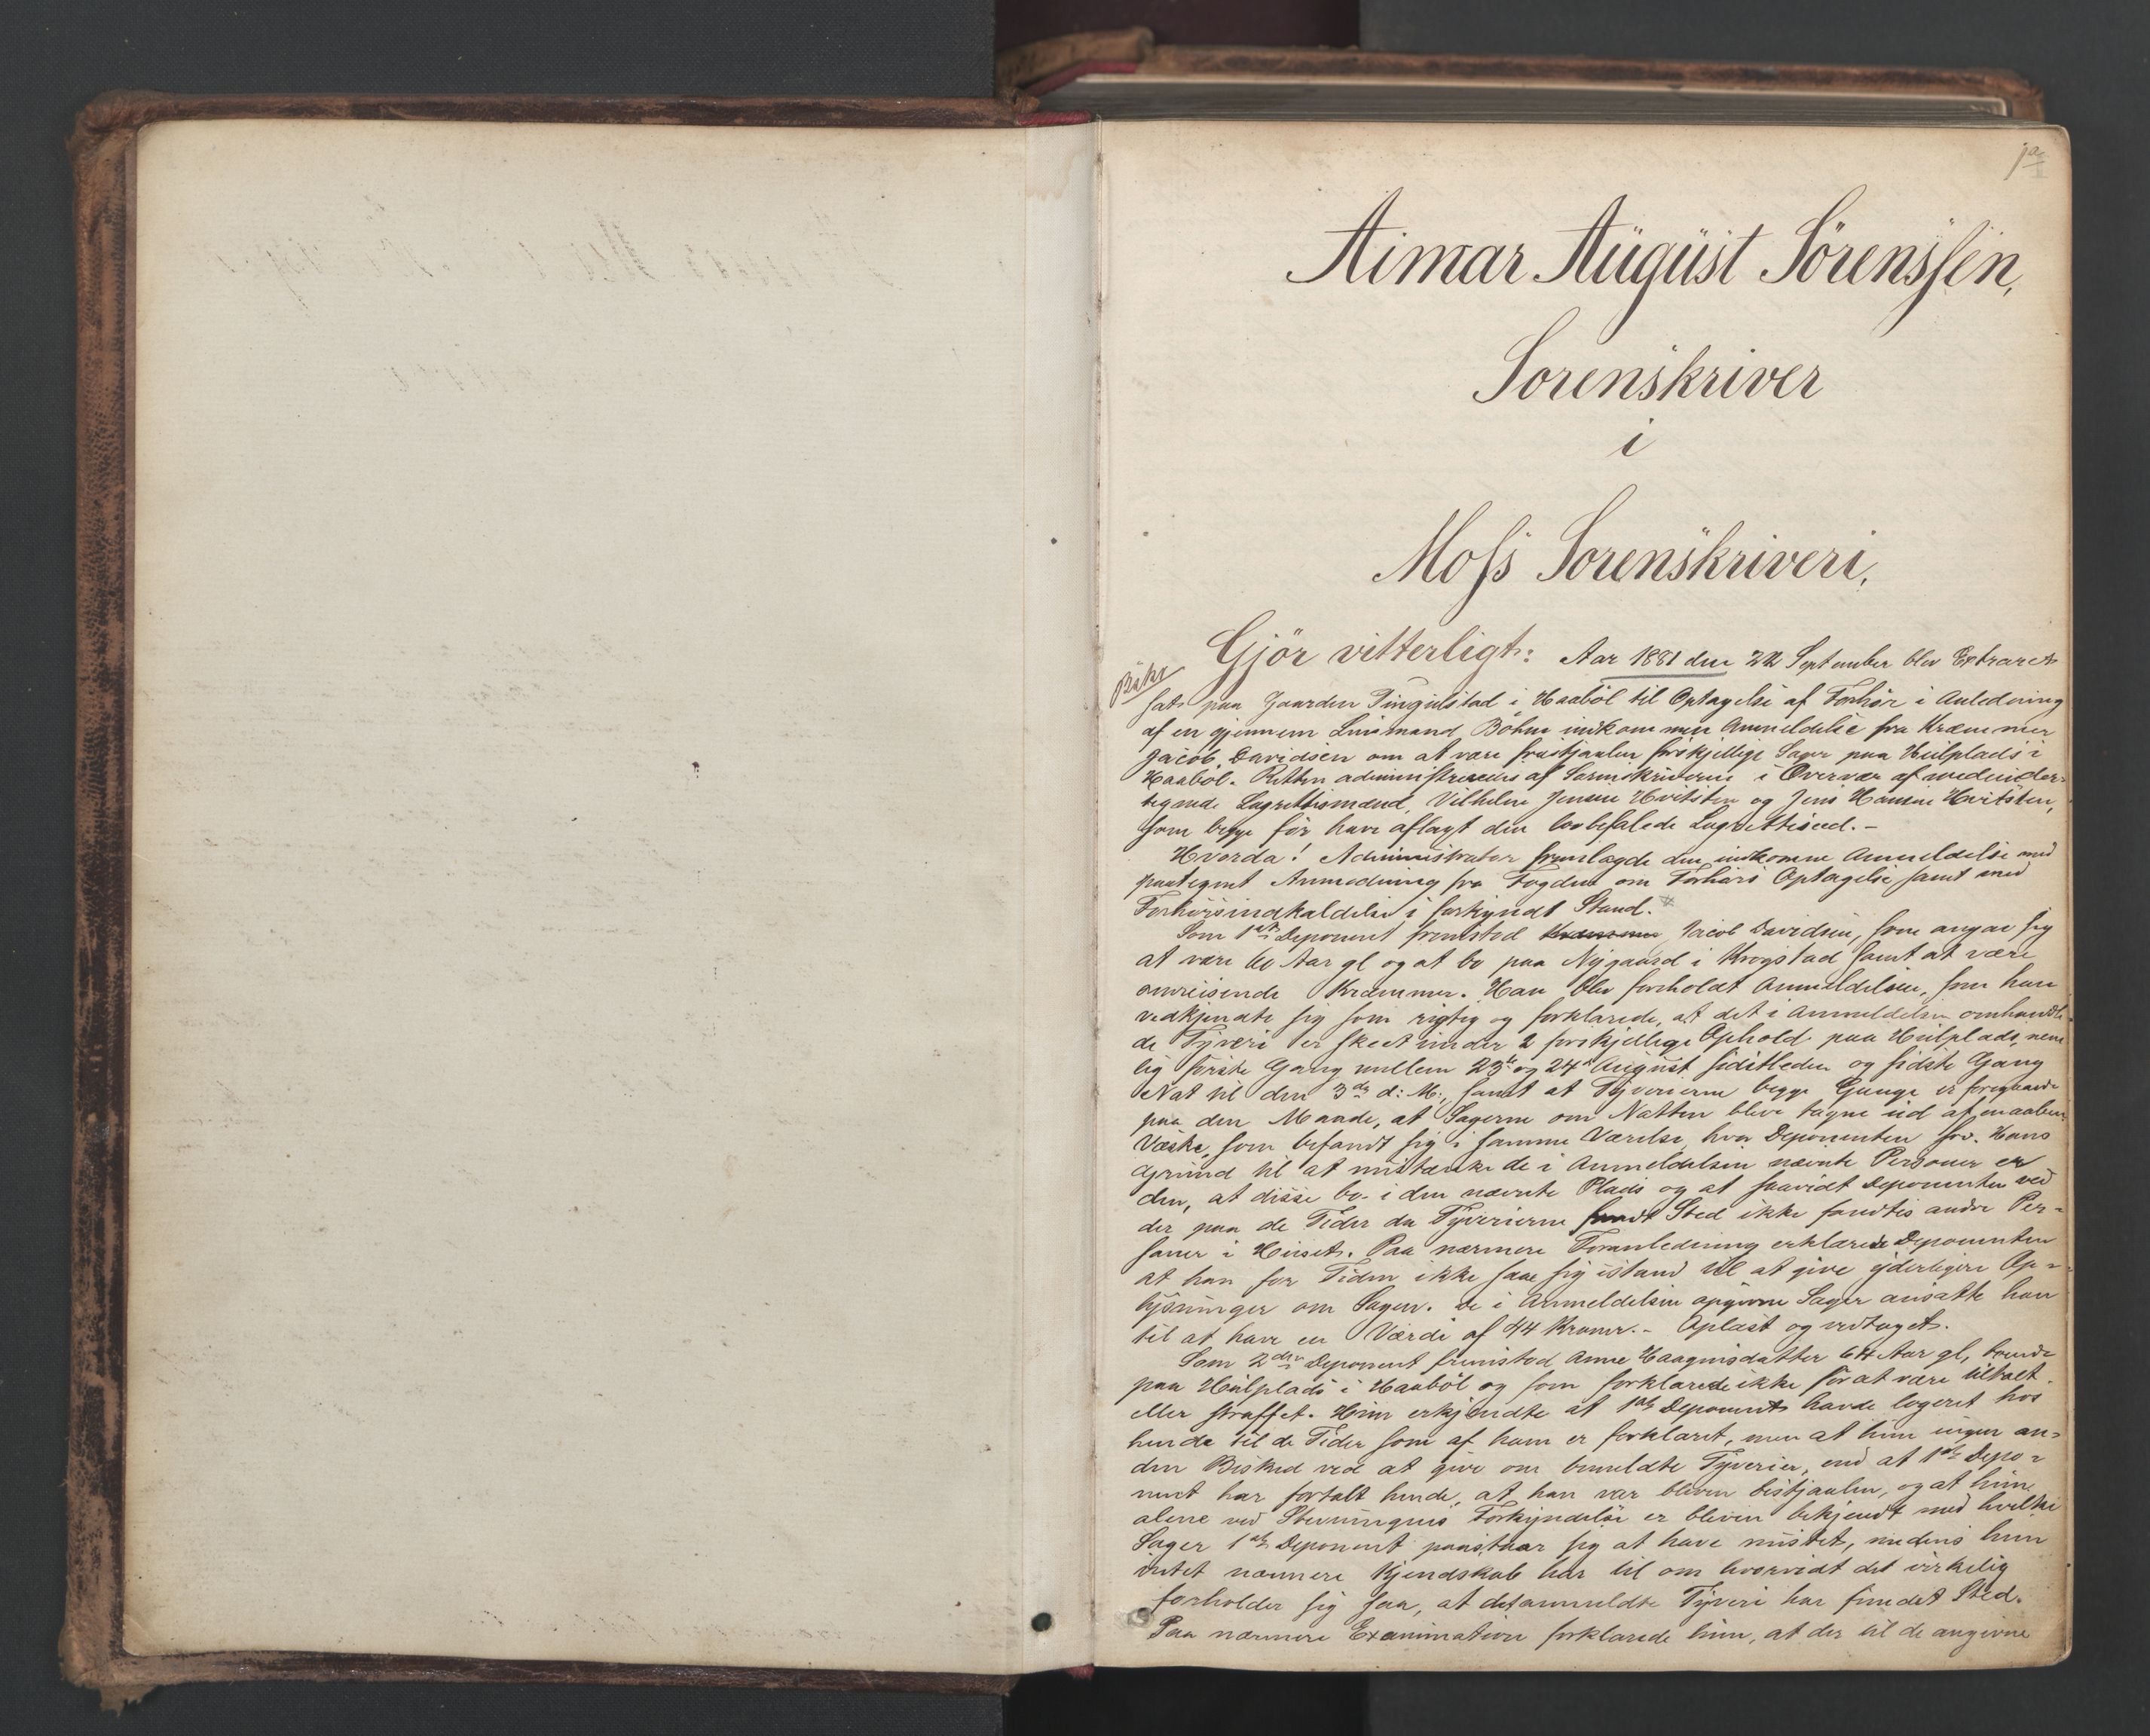 1a
Aimar August Sörenssen,
Sorenskriver
i
Moss Sorenskriveri,
Gjör vitterligt: Aar 1881 den 22 September blev Extraret
sat paa Gaarden Tingulstad i Haaböl til Optagelse af Forhör i Anledning
af en gjennem Lensmand Böhn indkommen Anmeldelse fra Kræmmer
Jacob Davidsen om at være frastjaalen forskjellige Sager paa Hülplads i
Haaböl. Retten administreredes af Sorenskriveren i Overvær af medunder-
tegnede Lagrettesmænd, Vilhelm Jensen Hvitsten og Jens Hansen Hvitsten,
som begge för have aflagt den lovbefalede Lagretteseed.-
Hvorda! Administrator fremlagde den indkomne Anmeldelse med
paategnet Anmodning fra Fogden om Forhörs Optagelse samt med
Forhörsindkaldelse i forkyndt Stand.
Som 1ste Deponent fremstod Kræmmer Jacob Davidsen, som angav sig
at være 60 Aar gl og at bo paa Nygaard i Krogstad samt at være
omreisende Kræmmer. Han blev foreholdt Anmeldelsen, som han
vedkjendte sig som rigtig og forklarede, at det i Anmeldelsen omhandle
de Tyveri er skeet under 2 forskjellige Ophold paa Hülplads, nem
lig förste Gang mellem 23de og 24de August sidstleden og sidste Gang
Nat til den 3de d: M:, samt at Tyverierne begge Gange er foregaaede
paa den Maade, at Sagerne om Natten bleve tagne ud af en aaben
Væske, som befandt sig i samme Værelse, hvor Deponenten sov. Hans
Grund til at mistænke de i Anmeldelsen nævnte Personer er
den, at disse bo i den nævnte Plads og at saavidt Deponenten ved
der paa de Tider da Tyverierne fandt Sted ikke fandtes andre Per-
soner i Huset. Paa nærmere Foranledning erklærede Deponenten
at han for Tiden ikke saae sig istand til at give yderligere Op-
lysninger om Sagen. De i Anmeldelsen opgivne Sager ansatte han
til at have en Værdi af 44 Kroner.- Oplæst og vedtaget.
Som 2den Deponent fremstod Anne Haagensdatter 64 Aar gl, boende
paa Hülplads i Haaböl og som forklarede ikke för at være tiltalt
eller straffet. Hun erkjendte at 1ste Deponent havde logeret hos
hende til de Tider som af ham er forklaret, men at hun ingen an-
den Besked ved at give om bemeldte Tyverier, end at 1ste Depo-
nent har fortalt hende, at han var bleven bestjaalen, og at hun
alene ved Stevningens Forkyndelse er bleven bekjendt med hvilke
Sager 1ste Deponent paastaar sig at have mistet, medens hun
intet nærmere Kjendskab har til om hvorvidt det virkelig
forholder sig saa, at det anmeldte Tyveri har fundet Sted.
Paa nærmere Examination forklarede hun, at der til de angivne